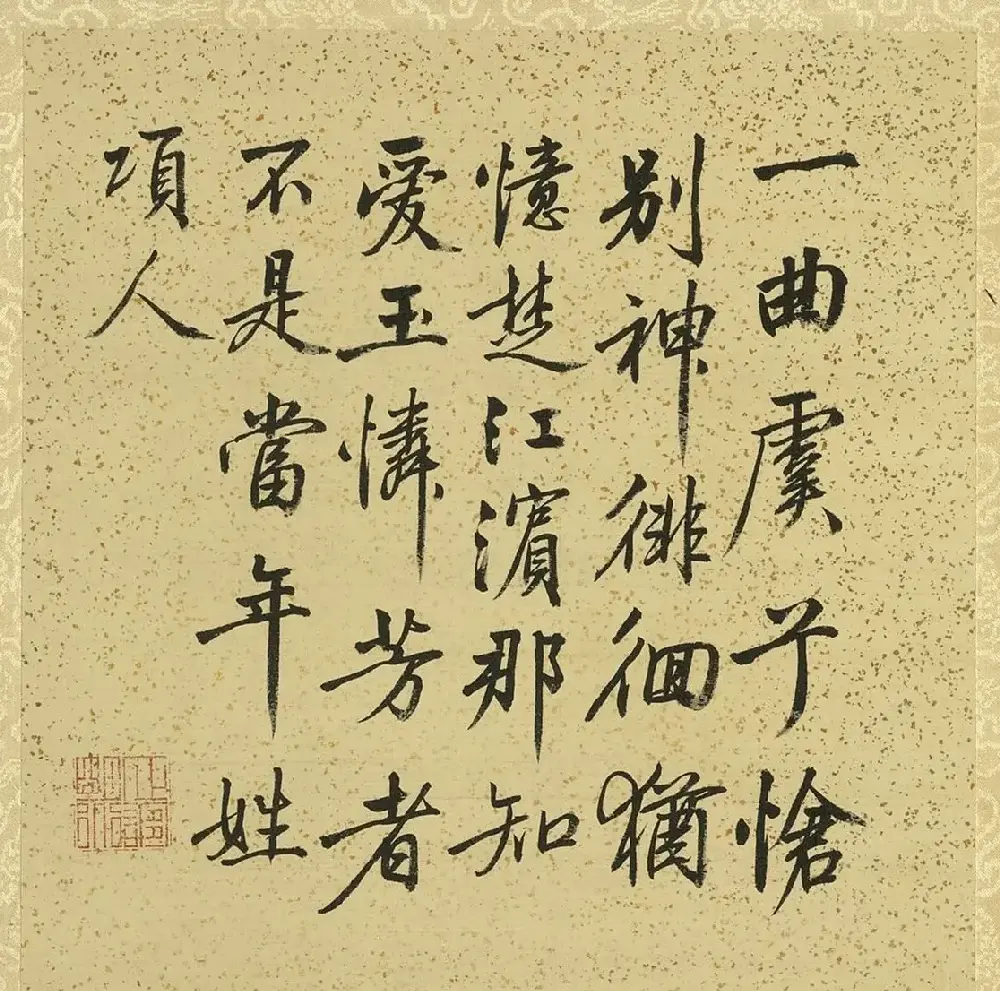 一曲虞兮愴
别神徘徊猶
憶楚江濱那知
愛玉憐芳者
不是當年姓
項人